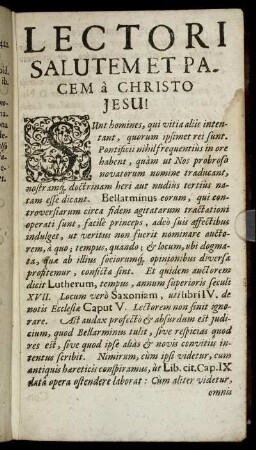 LECTORI
SALUTEM ET PA-
CEM à CHRISTO
JESU!
SUnt homines, qui vitia aliis inten-
tant, quorum ipsimet rei sunt.
Pontificii nihil frequentius in ore
habent, quàm ut Nos probroso
novatorum nomine traducant,
nostramq; doctrinam heri aut nudius tertius na-
tam esse dicant. Bellarminus eorum, qui con-
troversiarum circa fidem agitatarum tractationi
operati sunt, facilè princeps, adeò suis affectibus
indulget, ut veritus non fuerit nominare aucto-
rem, à quo; tempus, quando; & locum, ubi dogma-
ta, quæ ab illius sociorumq; opinionibus diversa
profitemur, conficta sint. Et quidem auctorem
dicit Lutherum, tempus, annum superioris seculi
XVII. Locum verò Saxoniam, uti libri IV. de
notis Ecclesiæ Caput V. Lectorem non sinit igno-
rare. Ast audax profectò & absurdum est judi-
cium, quod Bellarminus tulit, sive respicias quod
res est, sive quod ipse aliàs & novis convitiis in-
tentus scribit. Nimirum, cùm ipsi videtur, cum
antiquis hæreticis conspiramus, ùt Lib. cit. Cap. IX
datâ opera ostendere laborat: Cum aliter videtur,
omnia